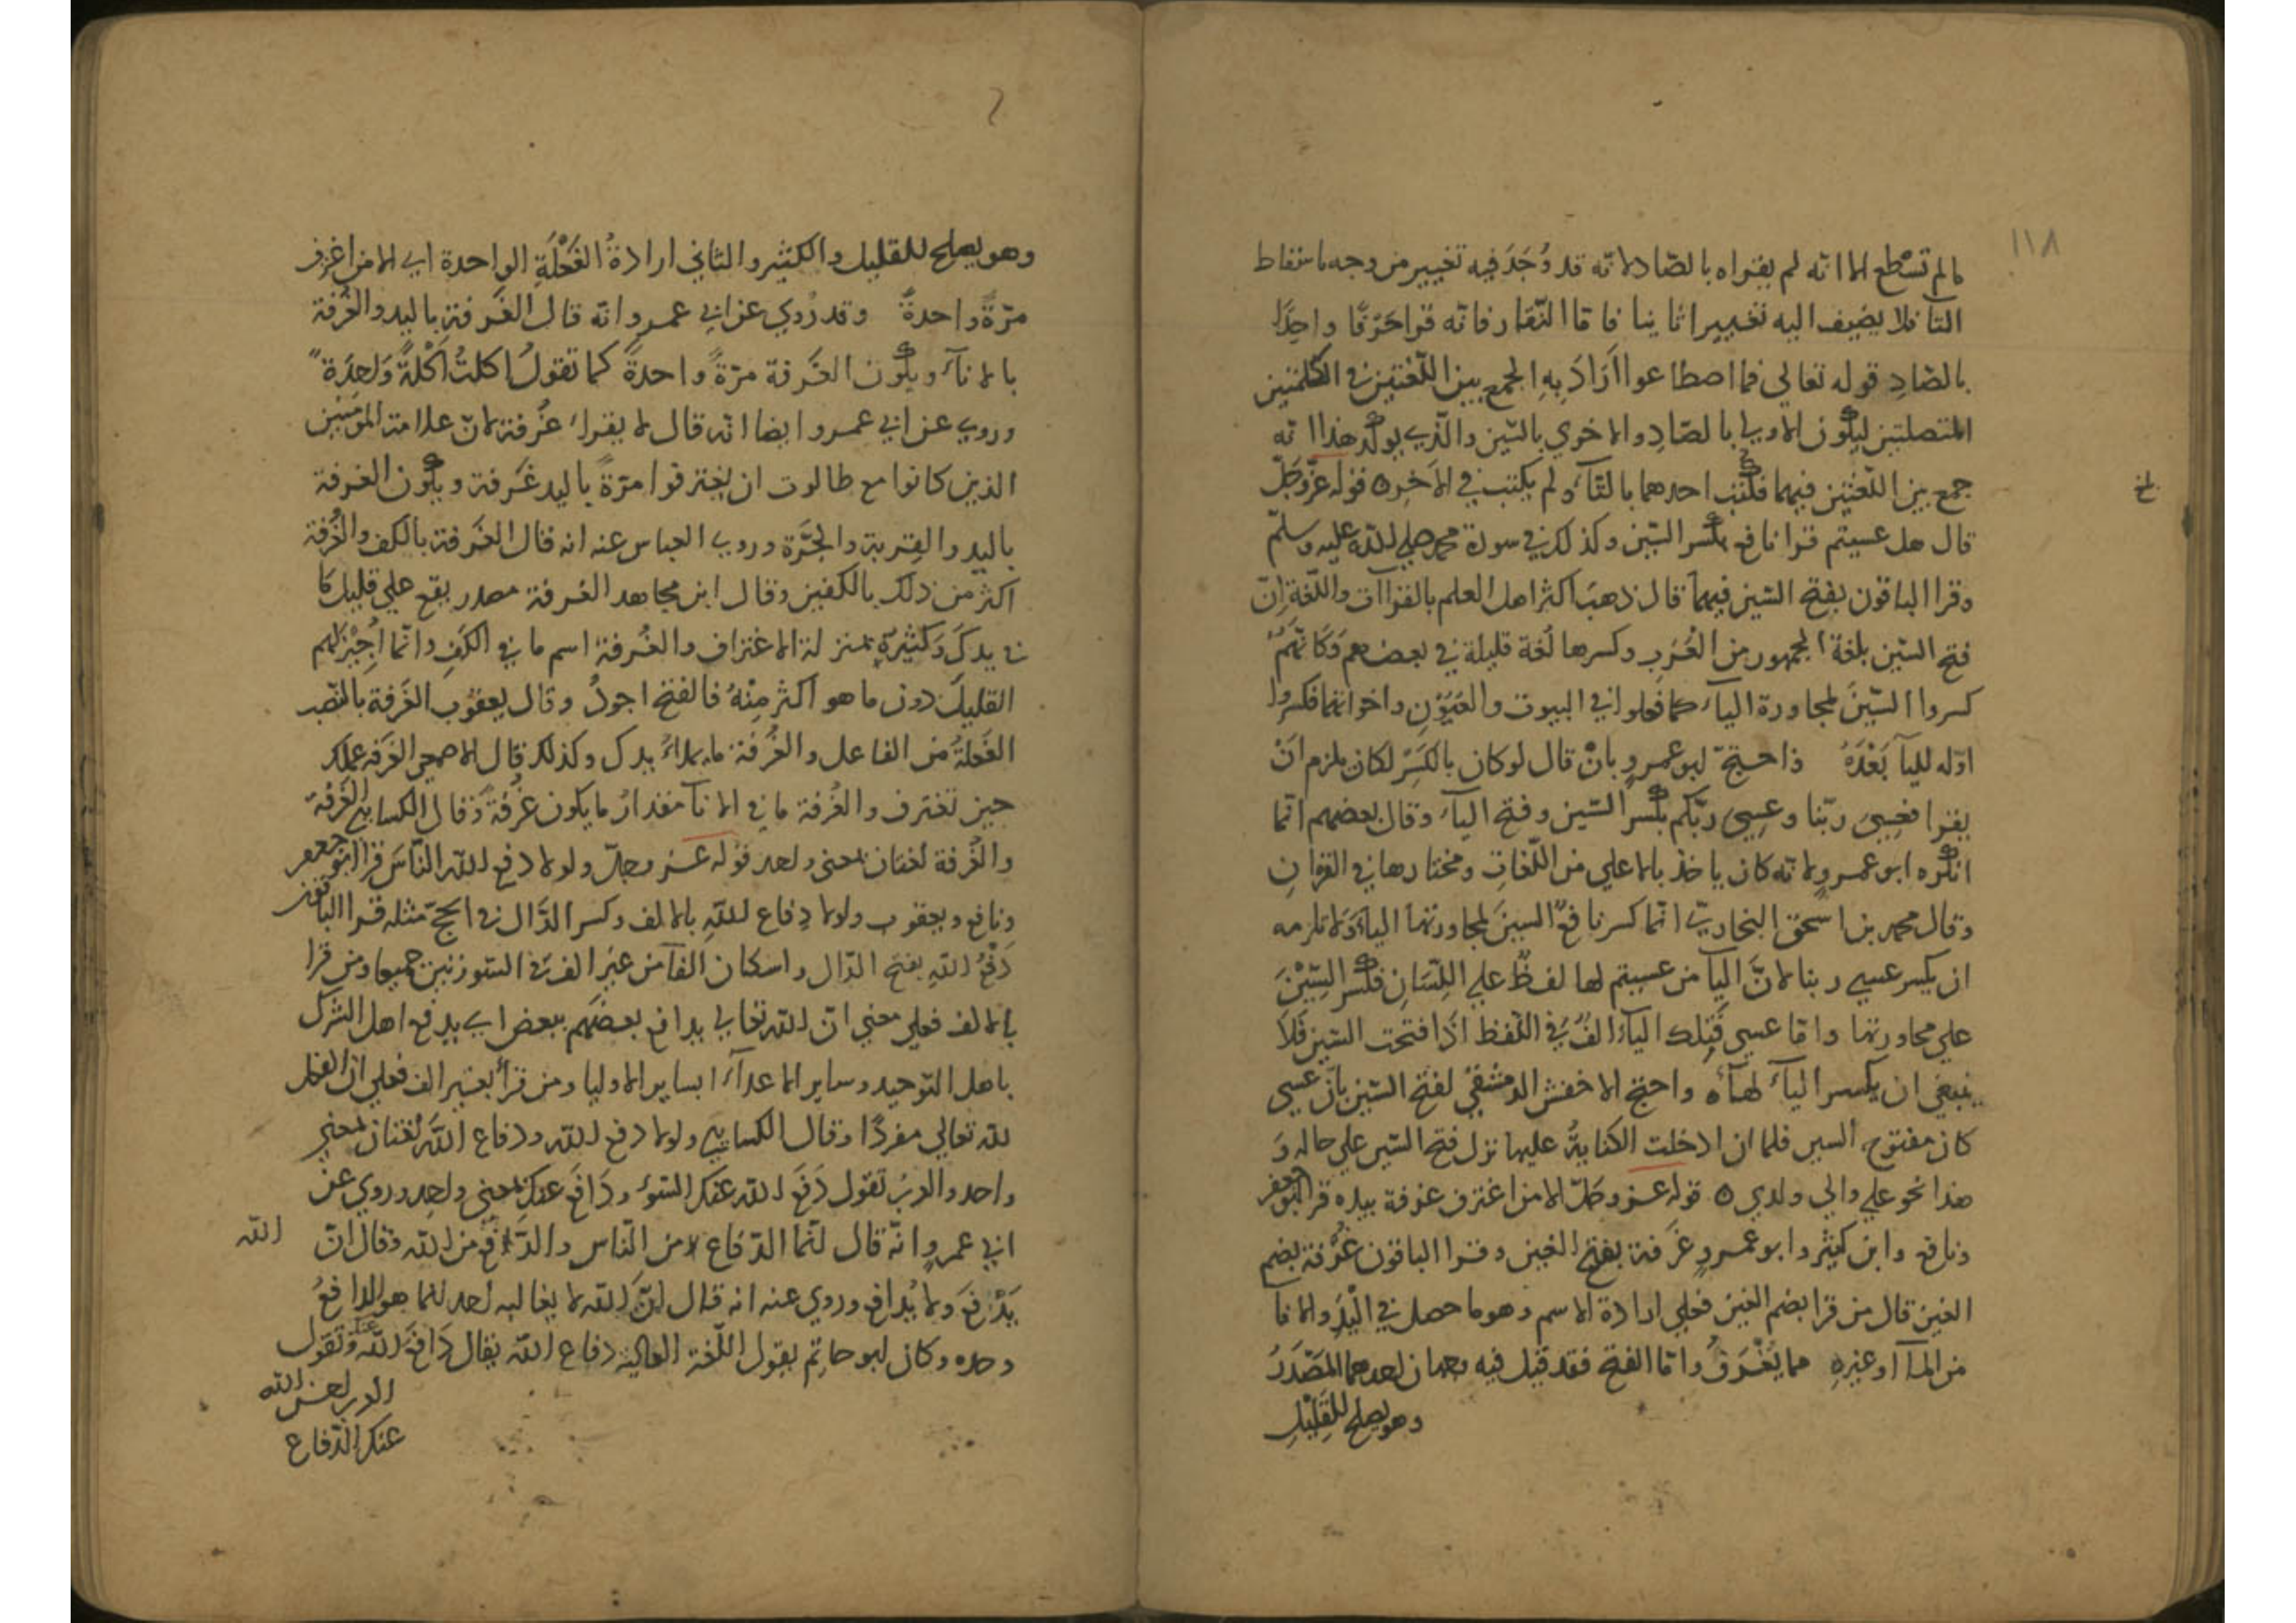 ١١٨
ما لم تسْطع الا انه لم يقراه بالصّاد لانه قد وُجدَ فيه تغيير من وجه باسقاط
التآ فلا يضيف اليه تغييرا ثانيا فاما النّقار فانه قرا حَرْفًا واحِدًا
بالصّادِ قوله تعالي فما اصطاعوا ارَادَ بِهِ الجمع بين اللّغتين في الكلمتين
المتصلتين ليكون الاولي بالصّادِ والاخري بالسّين والّذي يوكد هذا انه
جمع بين اللّغتين فيهما فكتب احدهما بالتّآء ولم يكتب في الاخرِ ه قوله عزّ وَجَلّ
قال هل عسيتم قرا نافع بكسر السّين وكذلك في سورة محمد صلي الله عليه وسلّم
وقرا الباقون بفتح السّين فيهما قال ذهبَ اكثر اهل العلم بالقراآت واللّغة اِنّ
فتح السّين بلغة الجمهور من العَرَبِ وكسرها لُغة قليلة في بعضهم وَكَانّهُمْ
كسروا السّينَ لمجاورة الياء كما فعلوا في البيوت والعُيُوْنِ واخواتهما فكسروا
اوّله لليآ بَعْدَهُ واحتجّ ابو عمرو بانْ قال لو كان بالكَسْرِ لكان يلزم انْ
يقرا فعِسِيَ ربّنا وعِسِيَ ربّكم بكسر السّين وفتح الياء وقال بعضهم انّما
انكره ابو عمرو لانه كان ياخذ بالاعلي من اللّغاتِ ومختارها في القرانِ
وقال محمد بن اسحق البخاريّ انّما كسر نافعٌ السينَ لمجاورتها الياءَ وَلا تلزمه
ان يكسر عسي ربنا لانَّ اليآ من عسيتم لها لفظٌ علي اللِّسَانِ فكسر السِّيْنَ
علي مجاورتها واما عسي فتلك الياءُ الفٌ في اللّفظ اذا فتحت السّين فَلاَ
ينبغي ان يكسر الياء لهآ ه واحتج الاخفش الدمشقيّ لفتح السّين بانّ عسي
كان مفتوح السين فلما ان ادخلت الكنايةُ عليها نزل فتح السّين علي حاله وَ
هذا نحو علي والي ولدي ه قوله عز وجلّ الا من اغترف غرفة بيده قرا ابو جعفر
ونافع وابن كثير وابو عمرو غَرْفة بفتح الغين وقرا الباقون غُرْفة بضم
الغين قال من قرا بضم الغين فعلي ارادة الاسم وهو ما حصل في الْيَدِ والانآ
من المآ او غيرهِ مما يُغْرَفُ واما الفتح فقد قيل فيه وجهان احدهما المَصْدَرُ
وهو يصلح للقَلِيْلِ
وهو يصلح للقليل والكثير والثاني ارادةُ الفَعْلَةِ الواحدة اي الا من اغترف
مرّةً واحدةً وقد رُوي عن ابي عمرو انه قال الغَرفة باليد والغُرفة
بالانآء ويكون الغَرفة مرّةً واحدةً كما تقولُ اكلتُ اَكْلةً وَاحِدَةً
وروي عن ابي عمرو ايضا انه قال لا يقراء غُرفة لانّ علامة المؤمنين
الذين كانوا مع طالوت ان يغترفوا مرّةً باليد غَرفة ويكون الغرفة
باليد والقِربة والجَرَّة وروي العباس عنه انه قال الغَرفة بالكف والغُرفة
اكثر من ذلك بالكفين وقال ابن مجاهد الغَرفة مصدر يقع علي قليل مَا
في يدكَ وَكثيرِهِ بمنزلة الاغتراف والغُرفة اسم ما في الكَفِ وانّما اُجِيْزَ لهم
القليلُ دون ما هو اكثر مِنْهُ فالفتح اجودُ وقال يعقوب الغَرفة بالنّصب
الفَعلةُ من الفاعل والغُرفة ما يملاءُ يدك وكذلك قال الاصمعي الغَرفة عملك
حين تغترف والغُرفة ما في الانآ مقدارُ ما يكون غُرفةً وقال الكسايي الغَرفة
والغُرفة لغتان بمعنى واحد قوله عز وجلّ ولولا دفع الله النّاسَ قرا ابو جعفر
ونافع ويعقوب ولولا دِفاع اللهِ بالالف وكسر الدّال في الحجّ مثله قرا الباقون
دَفْعُ اللهِ بفتح الدّال واسكان الفآ من غير الف في السّورتين جميعا ومن قرا
بالالف فعلي معني انّ الله تعالي يدافع بعضَهم ببعض اي يدفع اهل الشرك
باهل التوحيد وساير الاعدآء بساير الاوليا ومن قرأ بغير الف فعلي ان الفعل
لله تعالي مفردًا وقال الكسايي ولولا دفع الله ودفاع اللهِ لغتان بمعني
واحد والعربُ تقول دَفَعَ الله عنك السّوء ودَافَعَ عنك بمعني واحد وروي عن
ابي عمرو انّه قال انّما الدّفاع من النّاس والدَّفع من الله وقال انّ الله
يَدْفعَ ولا يُدافع وروي عنه انه قال اِنَّ الله لا يغالبه احد انما هو الدافعُ
وحده وكان ابو حاتِم يقول اللّغة العالية دفاع الله يقال دَافَعَ الله عنك وتقول
العرب احسن الله
عنك الدّفاع